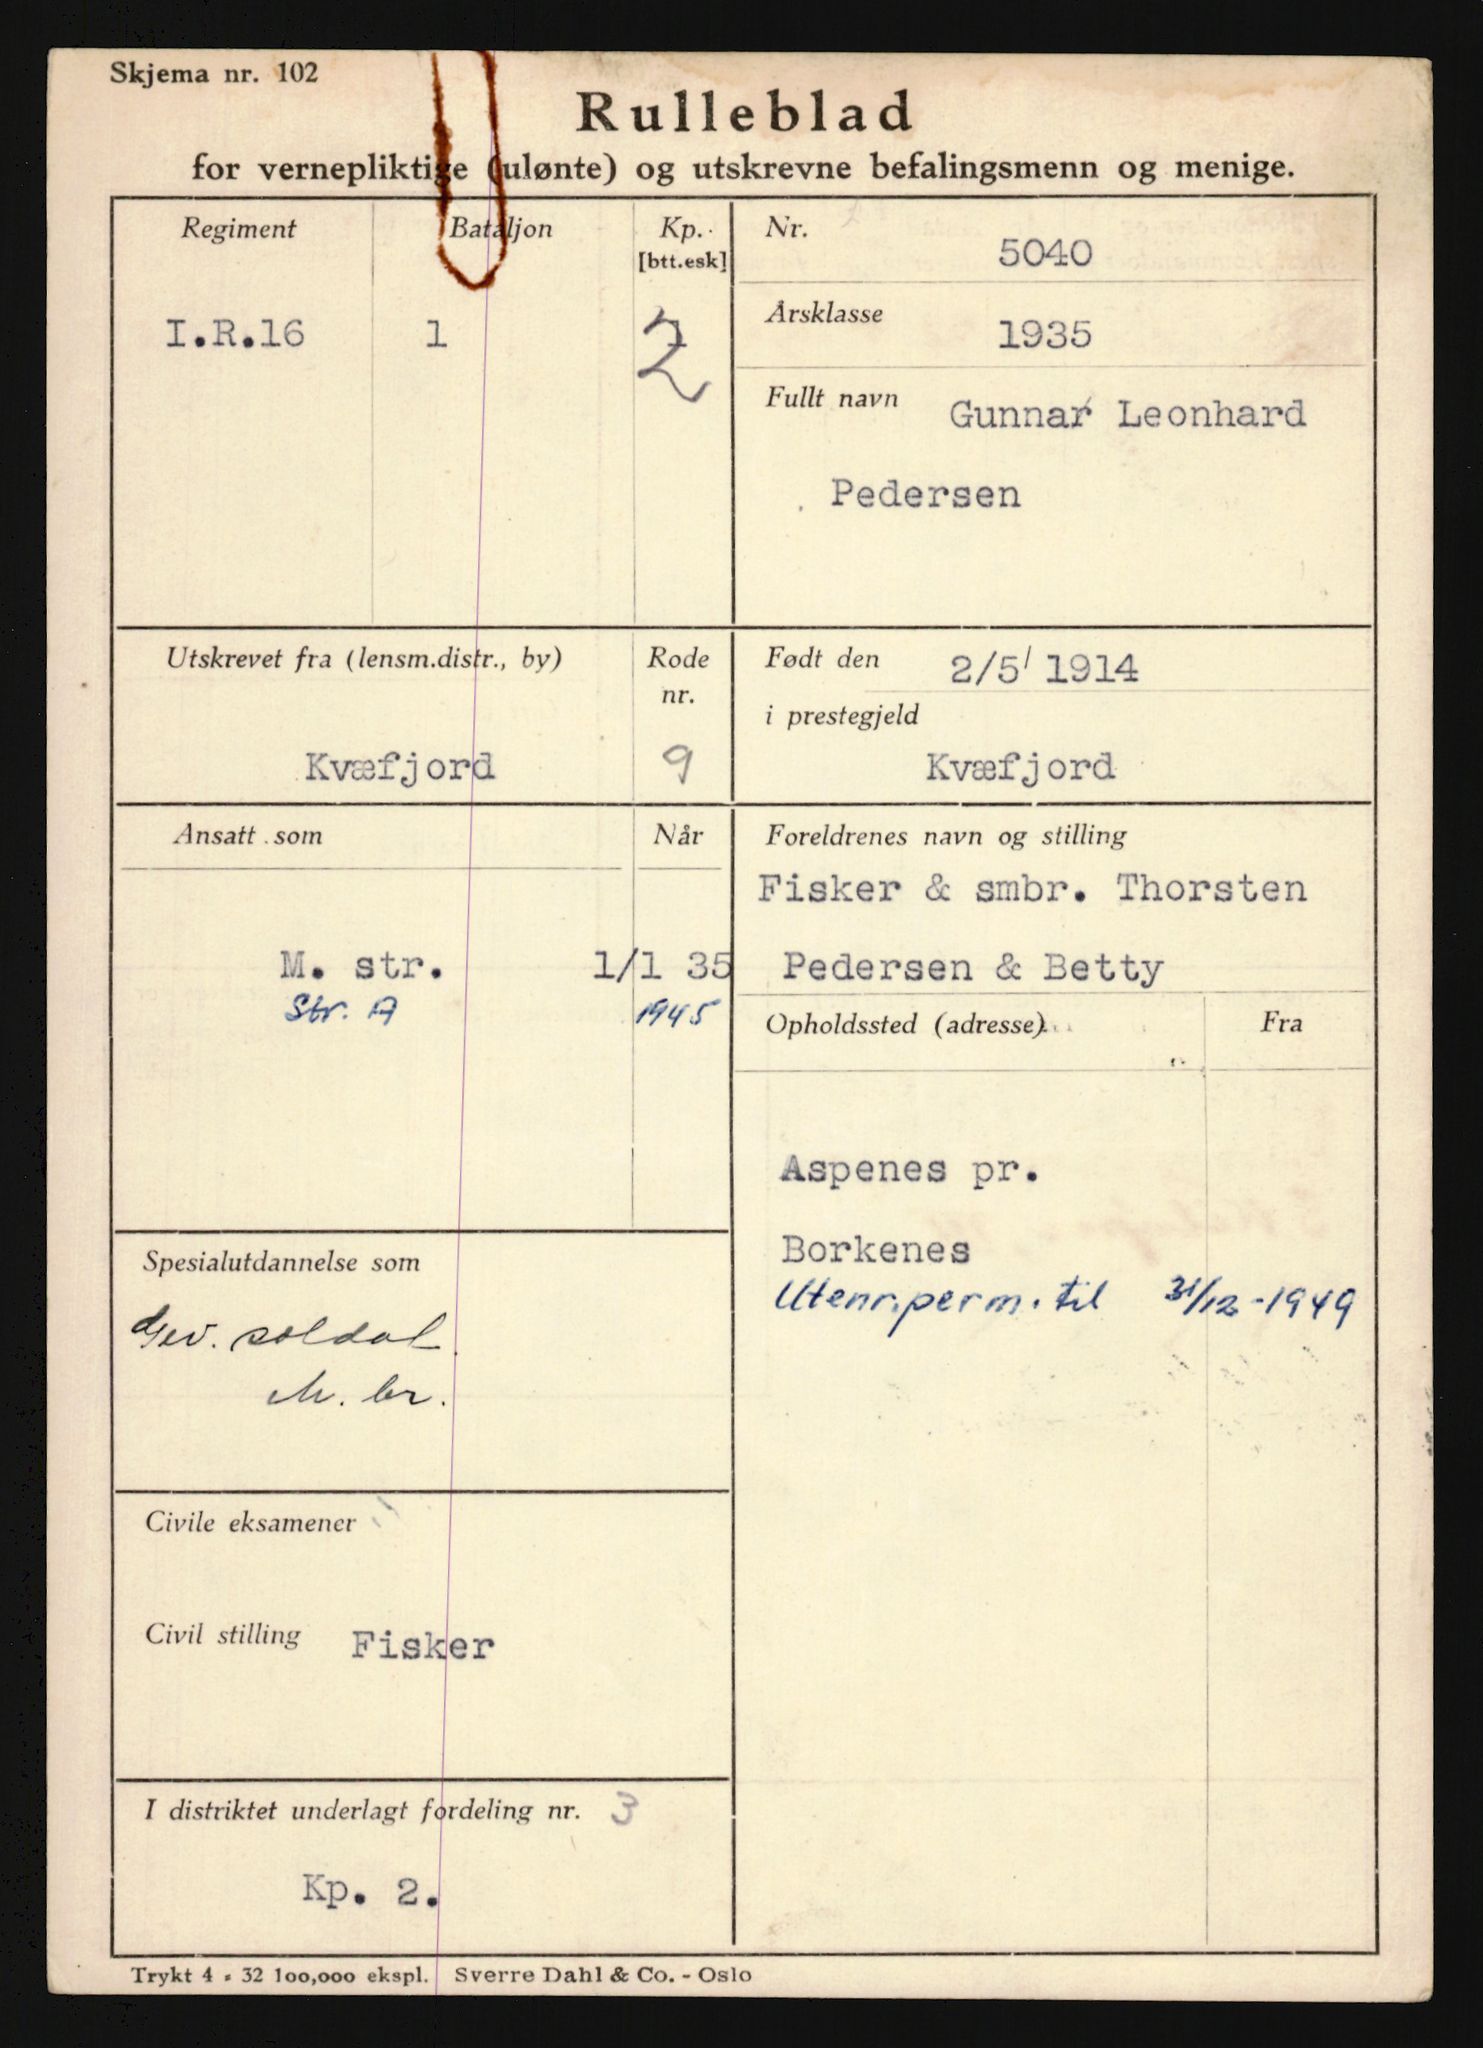 Skjema nr. 102
Rulleblad
for vernepliktige (ulønte) og utskrevne befalingsmenn og menige.
Regiment
Bataljon
Kp.
[btt.esk]
I.R.16
1
2
Nr.
5040
Årsklasse
1935
Fullt navn
Gunnar Leonhard
Pedersen
Utskrevet fra (lensm.distr., by)
Rode
nr.
Kvæfjord
9
Født den
2/5 1914
i prestegjeld
Kvæfjord
Ansatt som
Når
M. str.
1/1 35
Str. A
1945
Foreldrenes navn og stilling
Fisker & smbr. Thorsten
Pedersen & Betty
Opholdssted (adresse)
Fra
Aspenes pr.
Borkenes
Utenr.perm. til 31/12-1949
Spesialutdannelse som
Gev. soldat
M. br.
Civile eksamener
Civil stilling
Fisker
I distriktet underlagt fordeling nr. 3
Kp. 2.
Trykt 4 - 32 100,000 ekspl. Sverre Dahl & Co. - Oslo